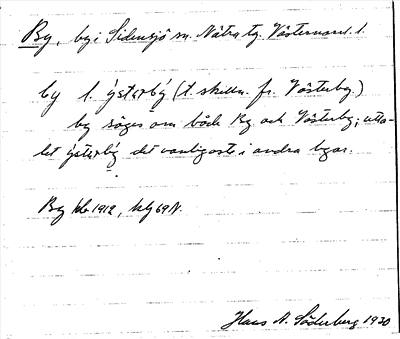 By, by i Sidensjö sn. Nätra tg. Västernorrl. l.
by l. ýstərbý (t. skilln. fr. Västerby.)
by säges om både By och Västerby; utta-
let ýstərbý det vanligaste i andra byar.
By kb 1912, blg 69 N.
Hans N. Söderberg 1930